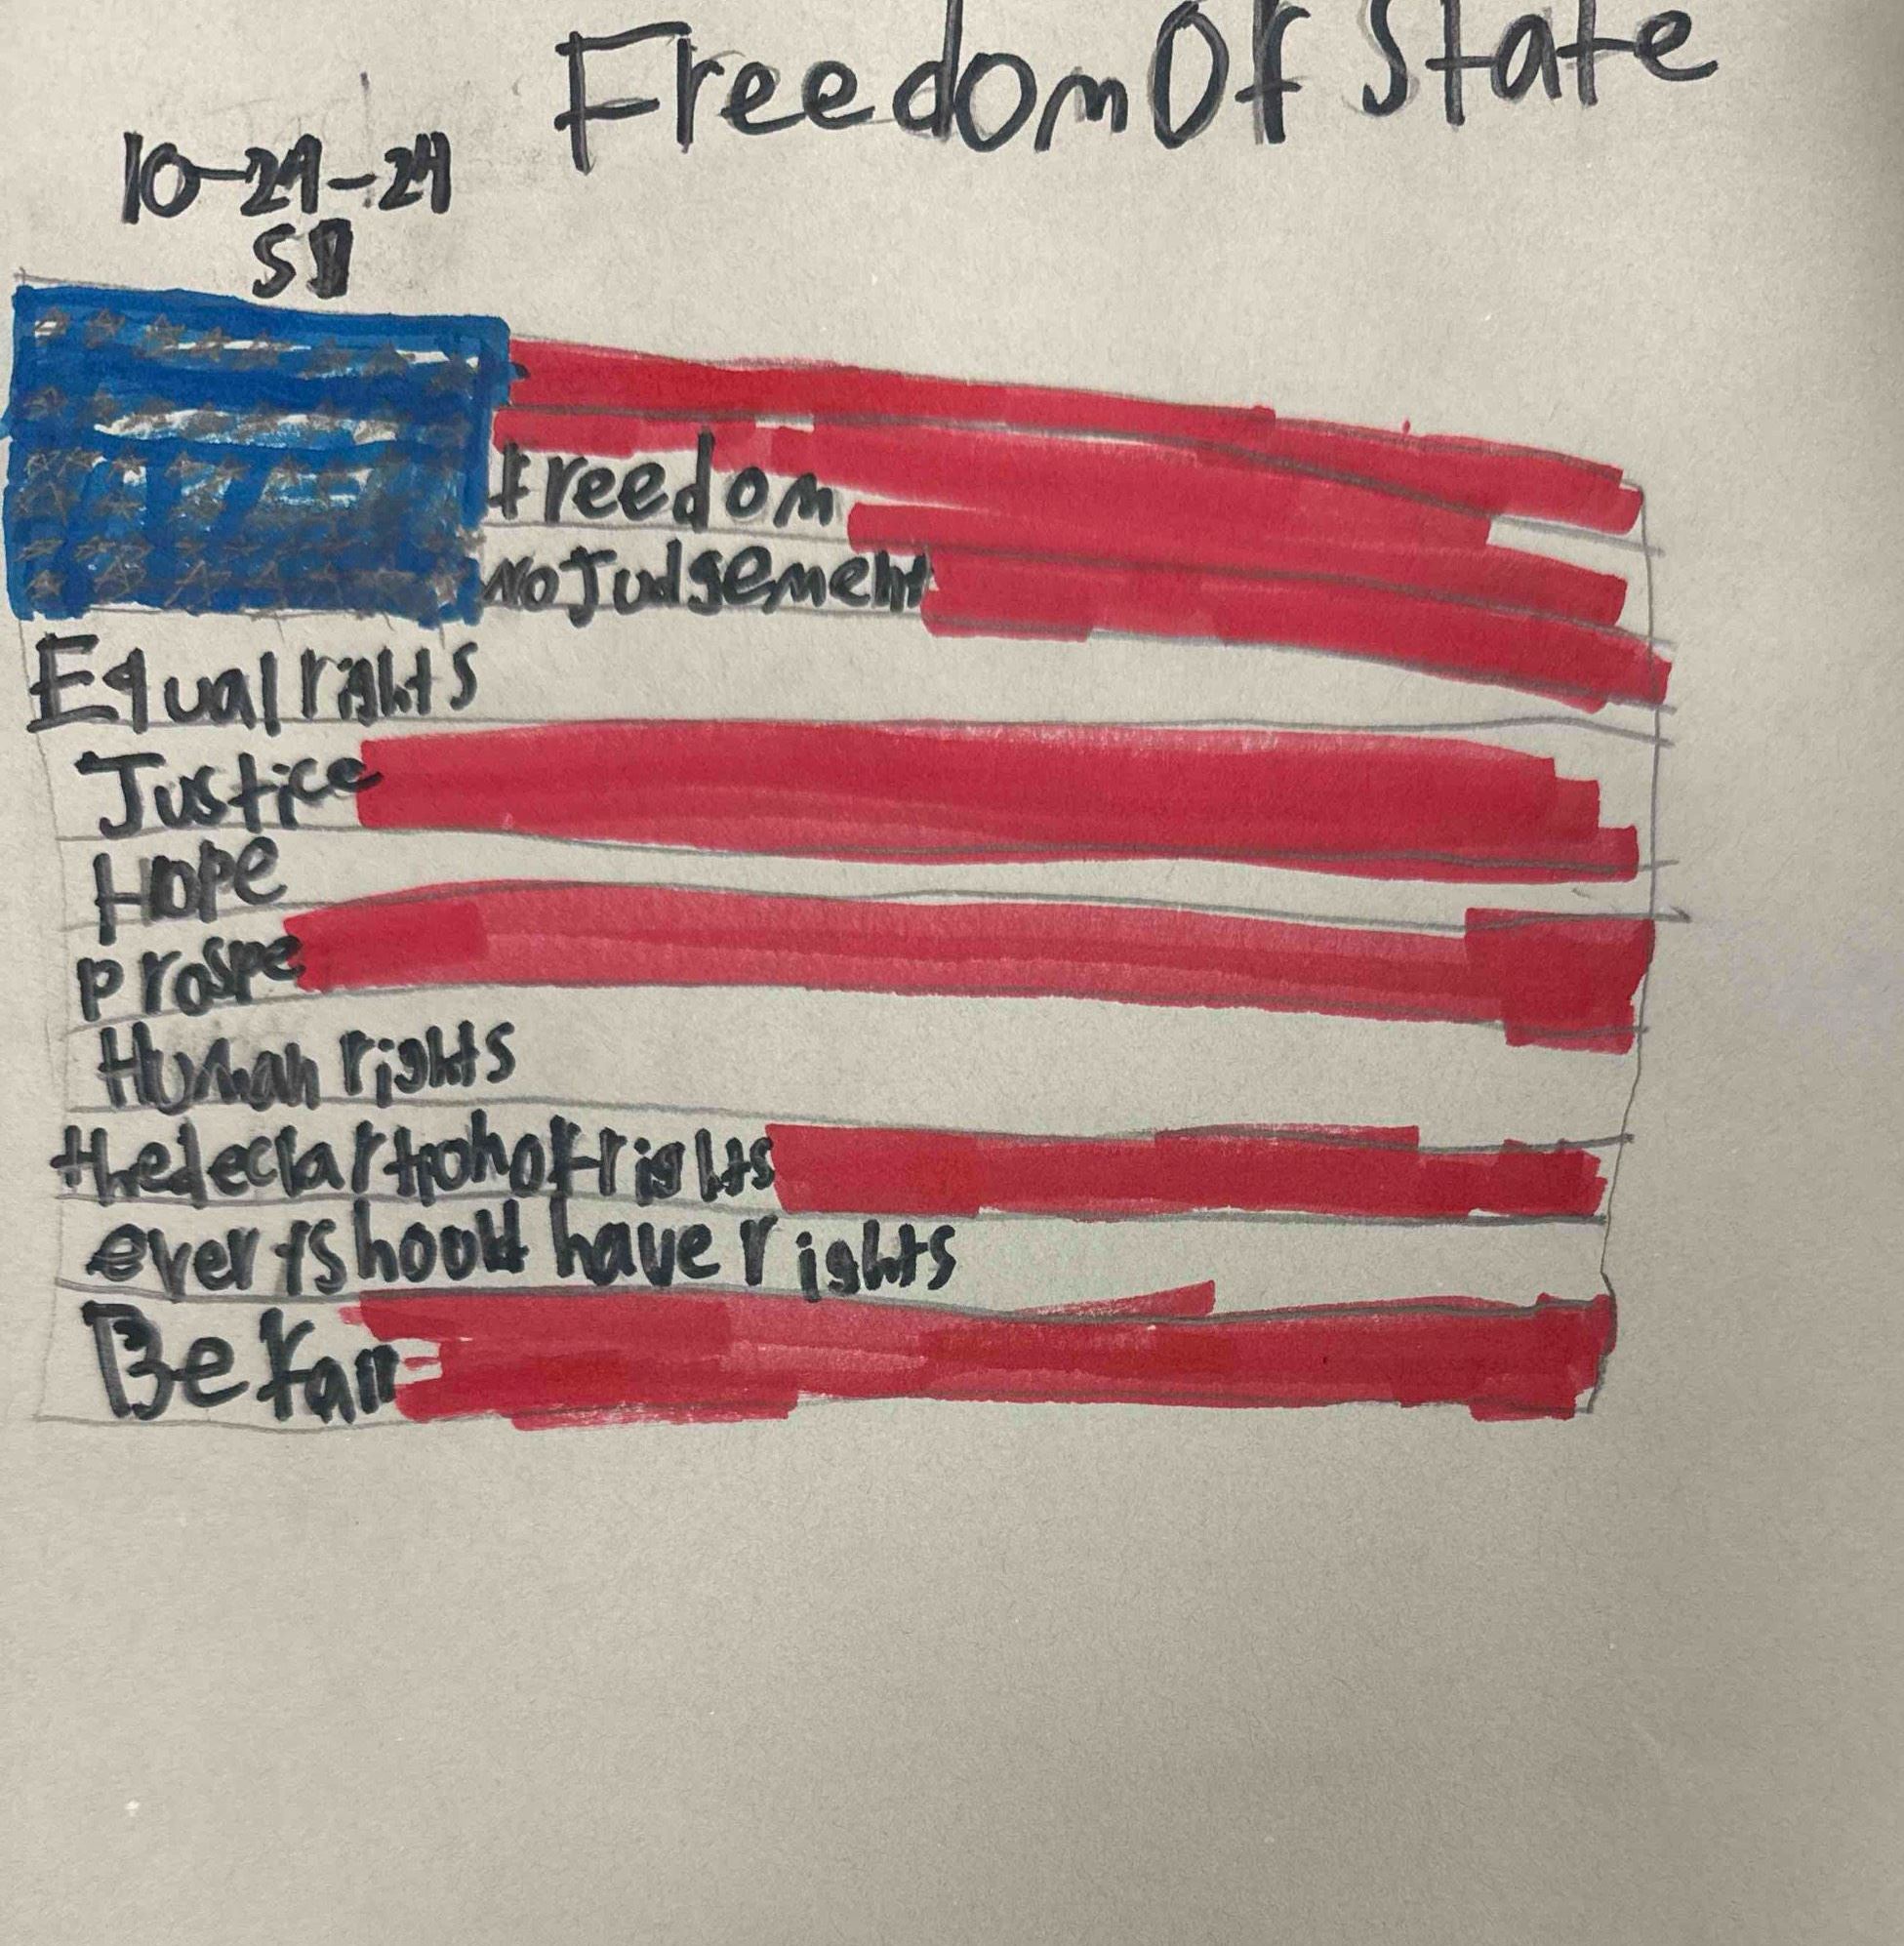 Freedom Of State
10-24-24
SD
freedom
No Judgement
Equal rights
Justice
Hope
prospe
Human rights
the declartion of rights
have rights
Be fair